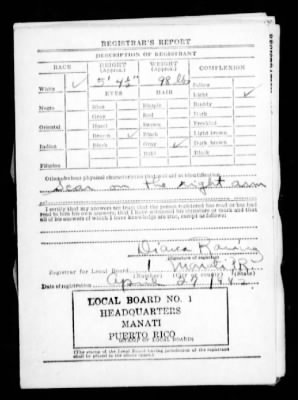 REGISTRAR'S REPORT
DESCRIPTION OF REGISTRANT
RACE HEIGHT (Approx.) WEIGHT (Approx.) COMPLEXION
White ✓ 98 lbs Sallow
EYES HAIR Light ✓
Negro Blue Blonde Ruddy
Gray Red Dark
Oriental Hazel Brown Freckled
Brown Black Light brown
Indian Black ✓ Gray ✓ Dark brown
Bald Black
Filipino
Other obvious physical characteristics that will aid in identification
Scar on the right arm
I certify that my answers are true; that the person registered has read or has had
read to him his own answers; that I have witnessed his signature or mark and that
all of his answers of which I have knowledge are true, except as follows:
Registrar for Local Board 1 Manati P.R.
(Number) (City or county) (State)
Date of registration April 27 1942
LOCAL BOARD NO. 1
HEADQUARTERS
MANATI
PUERTO RICO
(STAMP OF LOCAL BOARD)
(The stamp of the Local Board having jurisdiction of the registrant
shall be placed in the above space.)